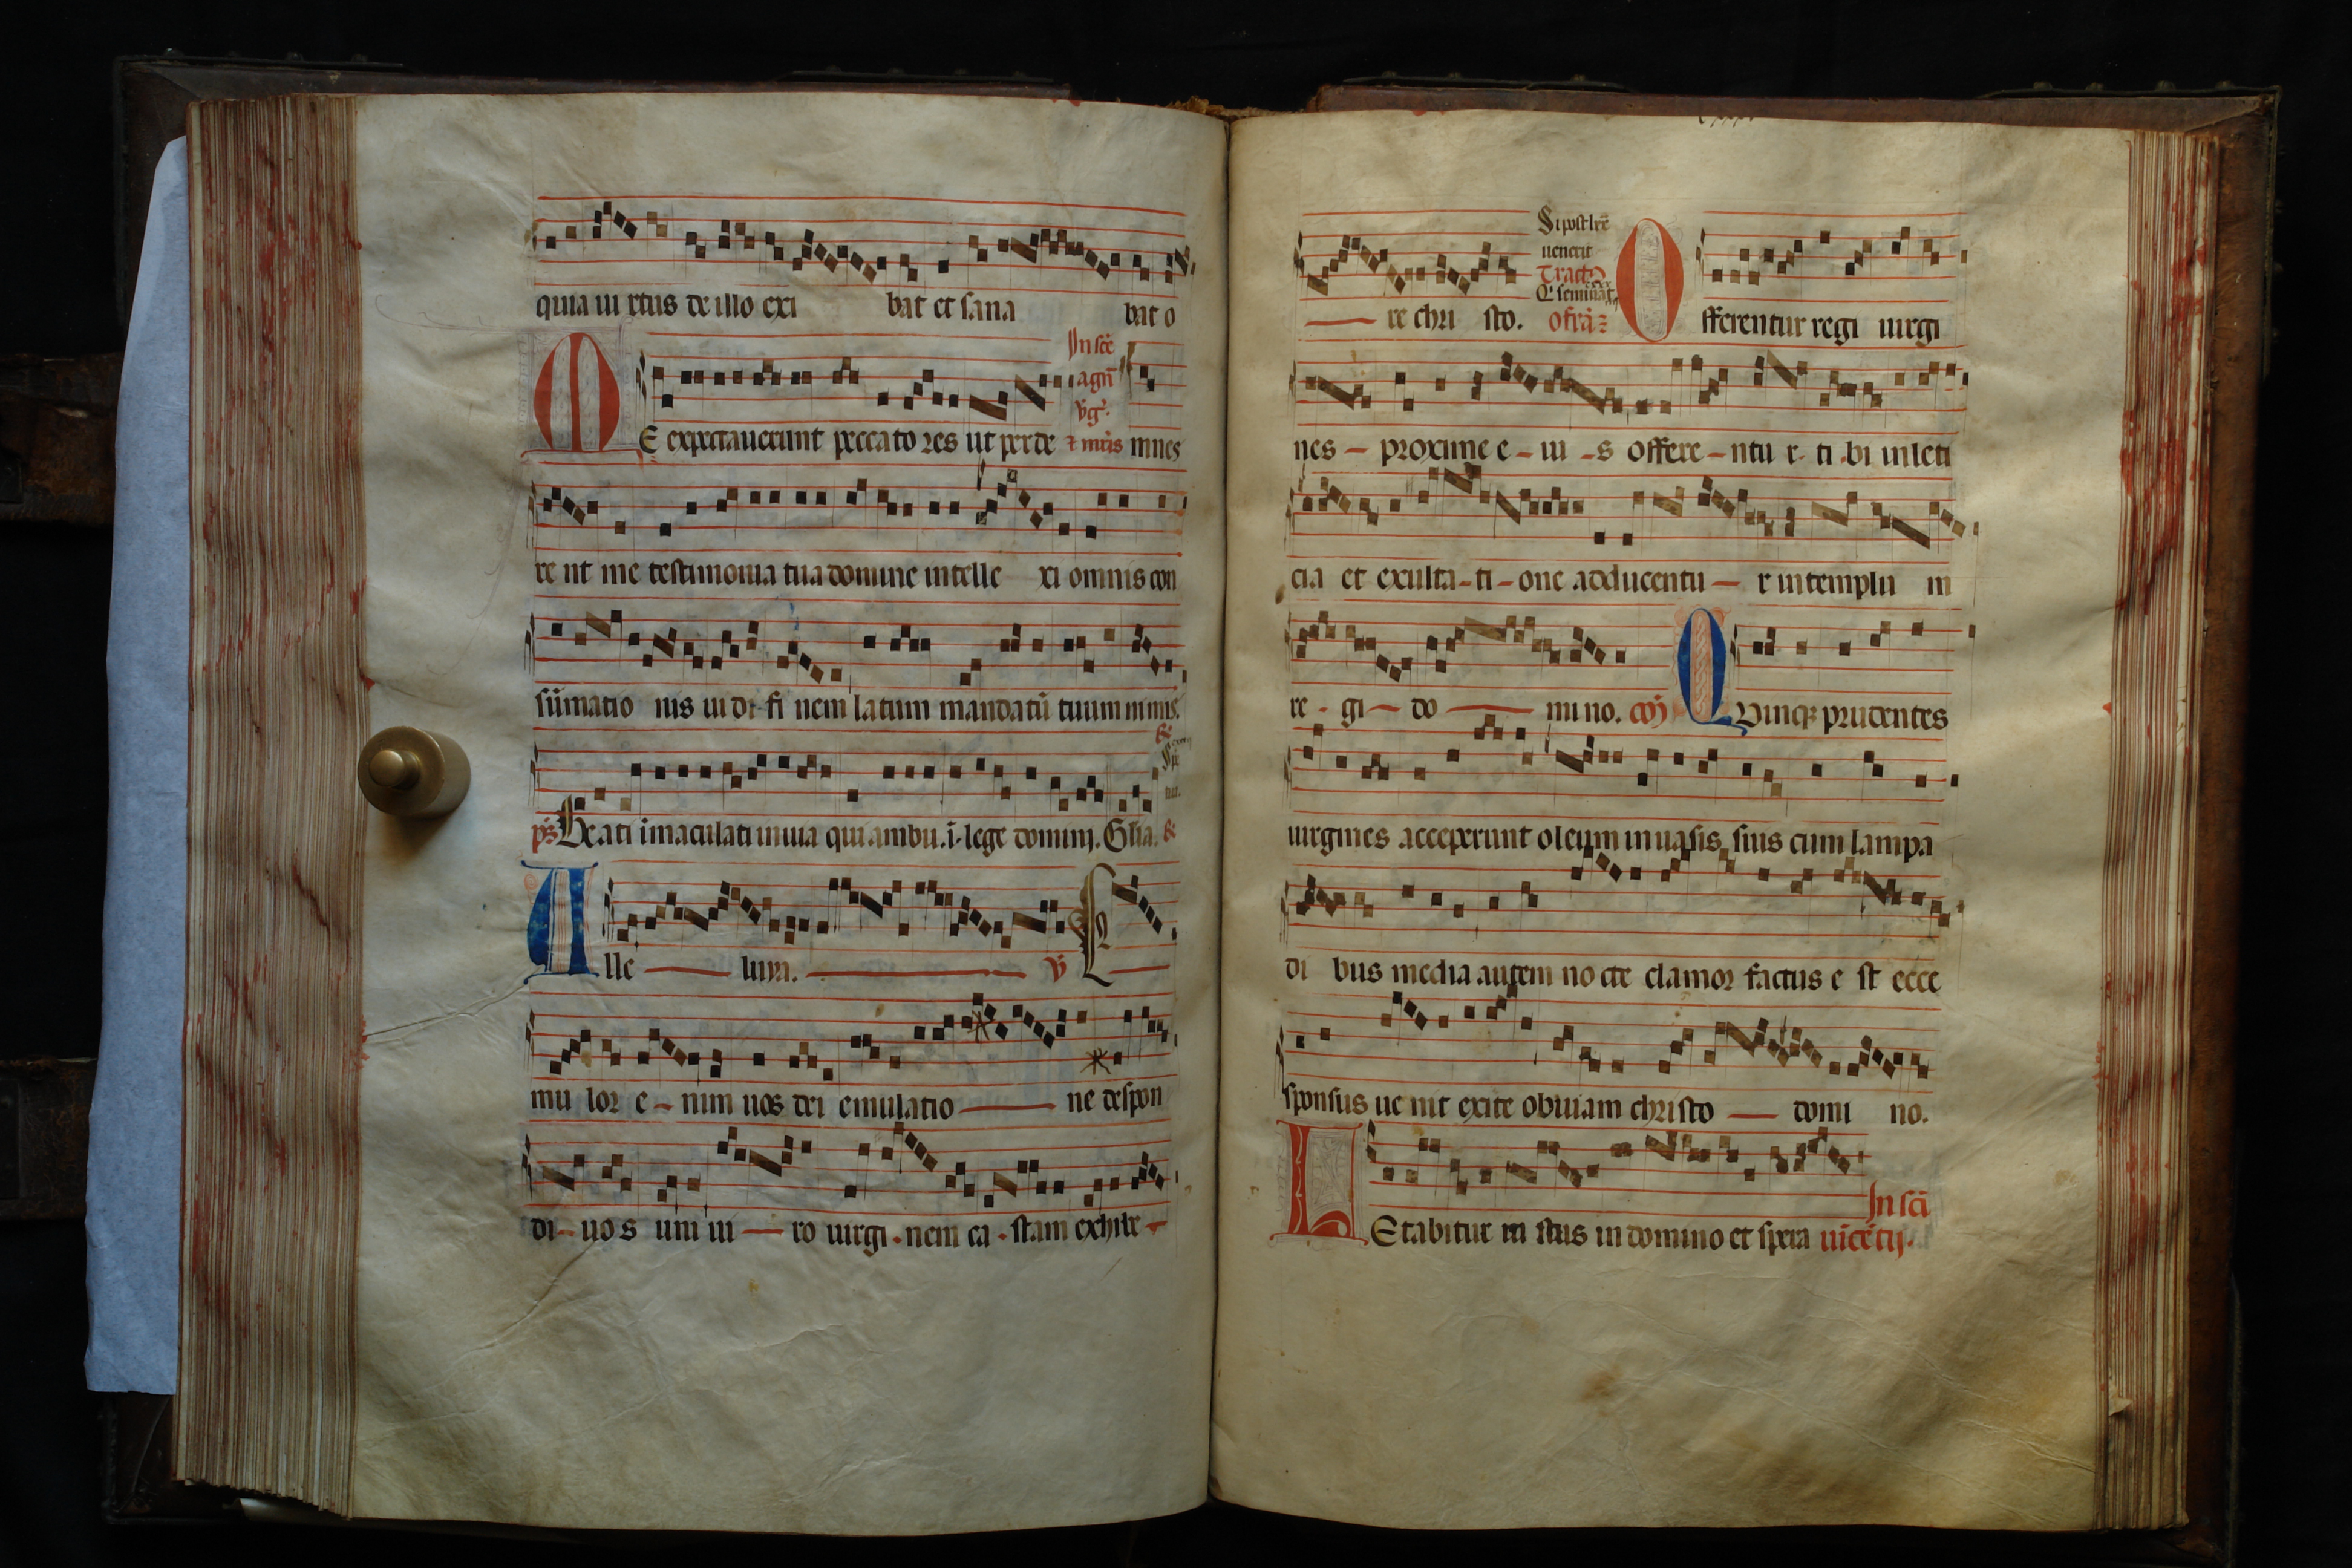 quia ui rtus de illo exi bat et sana bat o
In scē
agñ
v̄g̃.
M E expectauerunt peccato res ut perde ⁊ mr̃is mnes
re nt me testimonia tua domine intelle xi omnis con
sūmatio nis ui di fi nem latum mandatū tuum nimis.
ps̃ Beati īmaculati in uia qui ambu. ī lege domini. Gl̃ia.
A lle luya. v̄
mu lor e nim uos dei emulatio ne despon
di uo s uni ui ro uirgi nem ca stam exhibe
Si post lxx̃
uenerit
Tract9
Q̃ seminãt
re chri sto. ofrã O fferentur regi uirgi
nes proxime e iu s offere ntu r ti bi in leti
cia et exulta ti one adducentu r in templū m
re gi do mi no. cõ Q Vinqꝫ prudentes
uirgines acceperunt oleum in uasis suis cum lampa
di bus media autem no cte clamor factus e st ecce
sponsus ue nit exite obuiam christo domi no.
In scī
L Etabitur iustus in domino et spera uīcētij.